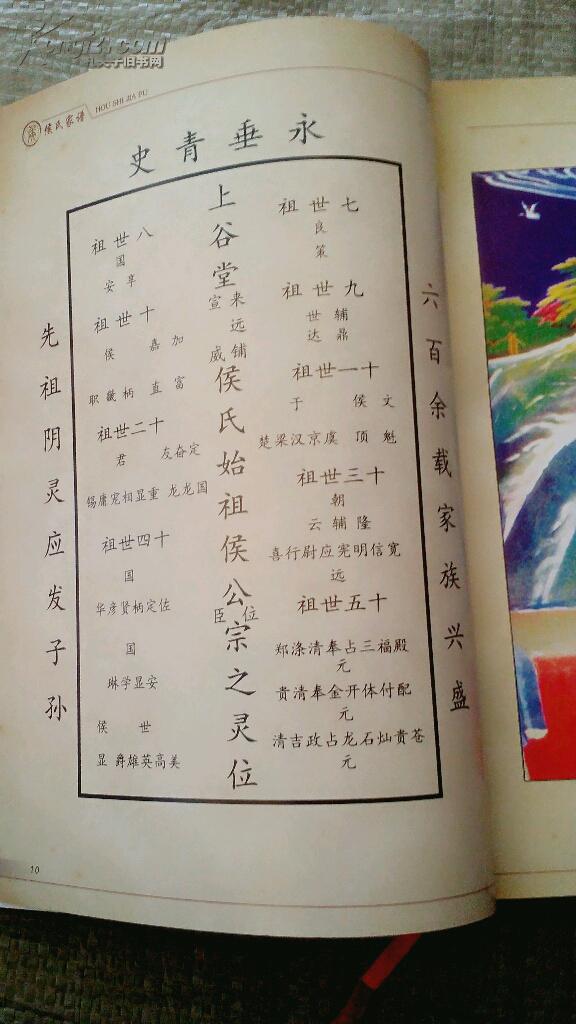 Kongfz.com
孔夫子旧书网
侯氏家谱
HOU SHI JIA PU
永垂青史
六百余载家族兴盛
先祖阴灵应发子孙
上谷堂
宣来
远
威铺
侯氏始祖侯公宗之灵位
臣位
七世祖
良
策
九世祖
世辅
达鼎
十一世祖
于 侯文
楚梁汉京虞 顶魁
十三世祖
朝
云辅隆
喜行尉应宪明信宽
远
十五世祖
郑涤清奉占三福殿
元
贵清奉金开体付配
元
清吉政占龙石灿贵苍
元
八世祖
国
安享
十世祖
侯 嘉加
职畿柄 直富
十二世祖
君 友奋定
锡庸宠相显重 龙龙国
十四世祖
国
华彦贤柄定佐
国
琳学显安
侯 世
显爵雄英高美
10